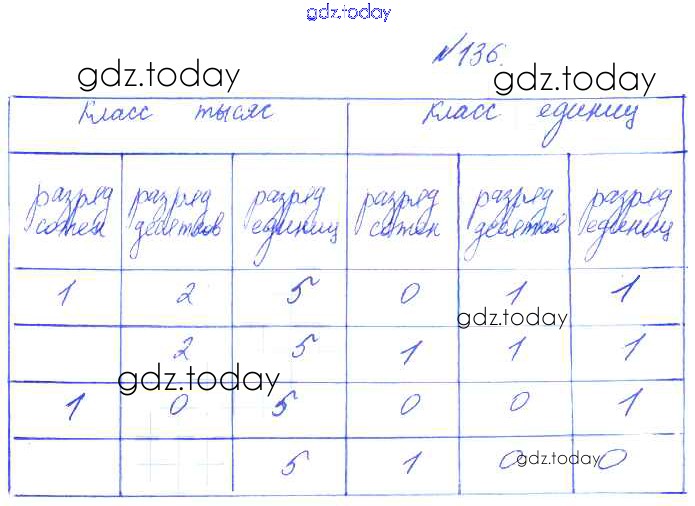 gdz.today
№136.
gdz.today gdz.today
Класс тысяч Класс единиц
разряд разряд разряд разряд разряд разряд
сотен десятков единиц сотен десятков единиц
1 2 5 0 1 1
gdz.today
2 5 1 1 1
gdz.today
1 0 5 0 0 1
5 1 0 0
gdz.today